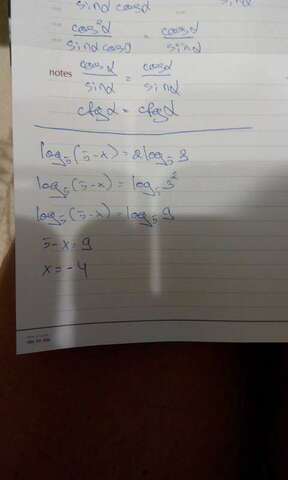 sinα cosα sinα
cos²α / sinα cosα = cosα / sinα
notes cosα / sinα = cosα / sinα
ctgα = ctgα
log₅(5-x) = 2log₅3
log₅(5-x) = log₅3²
log₅(5-x) = log₅9
5-x=9
x=-4